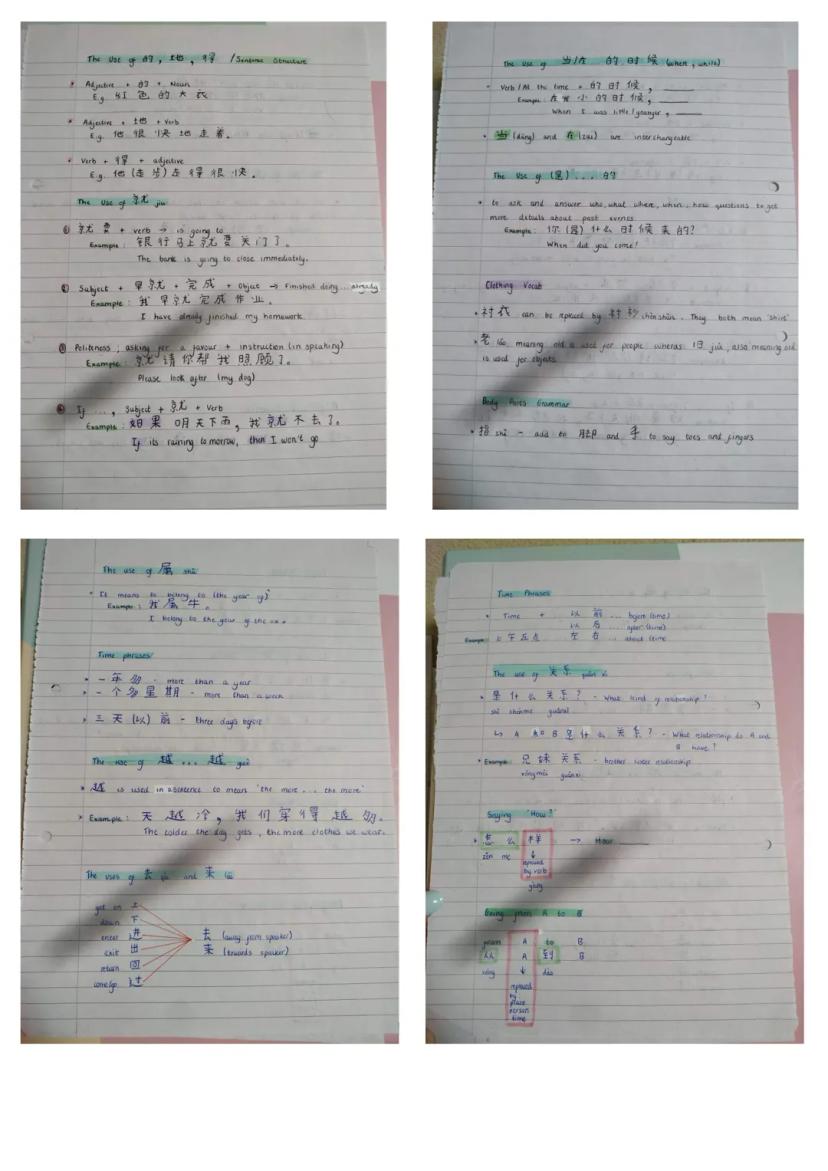 The Use of 的, 地, 得 / Sentence Structure
Adjective + 的 + Noun
E.g. 红色的大衣
Adjective + 地 + Verb
E.g. 他很快地走着。
Verb + 得 + adjective
E.g. 他(走步)走得很快。
The Use of 就 jiu
① 就要 + verb → is going to
Example: 银行马上就要关门了。
The bank is going to close immediately.
② Subject + 早就 + 完成 + Object → Finished doing... already
Example: 我早就完成作业。
I have already finished my homework
③ Politeness; asking for a favour + instruction (in speaking)
Example: 就请你帮我照顾了。
Please look after (my dog)
④ If ..., Subject + 就 + Verb
Example: 如果明天下雨,我就不去了。
If its raining tomorrow, then I won't go
The use of 当/在 的时候 (when, while)
Verb/At the time + 的时候, ____
Example: 在小的时候, ____
When I was little/younger, ____
当 (dāng) and 在 (zài) are interchangeable
The Use of (是)...的
to ask and answer who, what where, when, how questions to get
more details about past events
Example: 你(是)什么时候来的?
When did you come?
Clothing Vocab
衬衣 can be replaced by 衬衫 chènshān. They both mean 'shirt'
老 lǎo meaning old is used for people whereas 旧 jiù, also meaning old
is used for objects
Body Parts Grammar
指 - add to 脚 and 手 to say toes and fingers
The use of 属 shǔ
It means to belong to (the year of)
Example: 我属牛。
I belong to the year of the ox.
Time phrases
一年多 - more than a year
一个多星期 - more than a week
三天(以)前 - three days before
The use of 越...越
越 is used in a sentence to mean 'the more... the more'
Example: 天越冷,我们穿得越多。
The colder the day gets, the more clothes we wear.
The uses of 去 and 来
get on 上
down 下
enter 进
exit 出
return 回
come/go 过
去 (away from speaker)
来 (towards speaker)
Time Phrases
Time + 以前 ... before (time)
以后 ... after (time)
Example: 上午五点 左右 ... about (time
The use of 关系 guān xi
是什么关系? - What kind of relationship?
shì shénme guānxi
↳ A 和 B 是什么关系? - What relationship do A and
B have?
Example: 兄妹关系 - brother sister relationship
xiōngmèi guānxi
Saying 'How?'
怎么样 → How ____
zěn me
replaced
by verb
Going from A to B
from A to B
从 A 到 B
dào
replaced
by
place
person
time